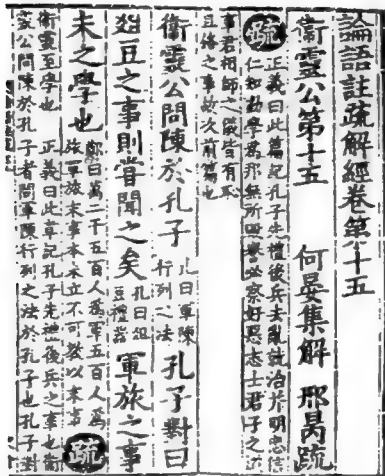 論語註疏解經卷第十五
衞靈公第十五 何晏集解 邢昺疏
疏 正義曰此篇記孔子先禮後兵去亂就治并明忠信
仁知勸學爲邦無所毀譽必察好惡志士君子之道
事君相師之儀皆有恥
且格之事故次前篇也
衞靈公問陳於孔子 孔曰軍陳行列之法 孔子對曰
俎豆之事則嘗聞之矣 孔曰俎豆禮器 軍旅之事
未之學也 鄭曰萬二千五百人爲軍五百人爲旅軍旅末事本未立不可教以末事 疏
衞靈至學也 正義曰此章記孔子先禮後兵之事也衞
靈公問陳於孔子者問軍陳行列之法於孔子也孔子對